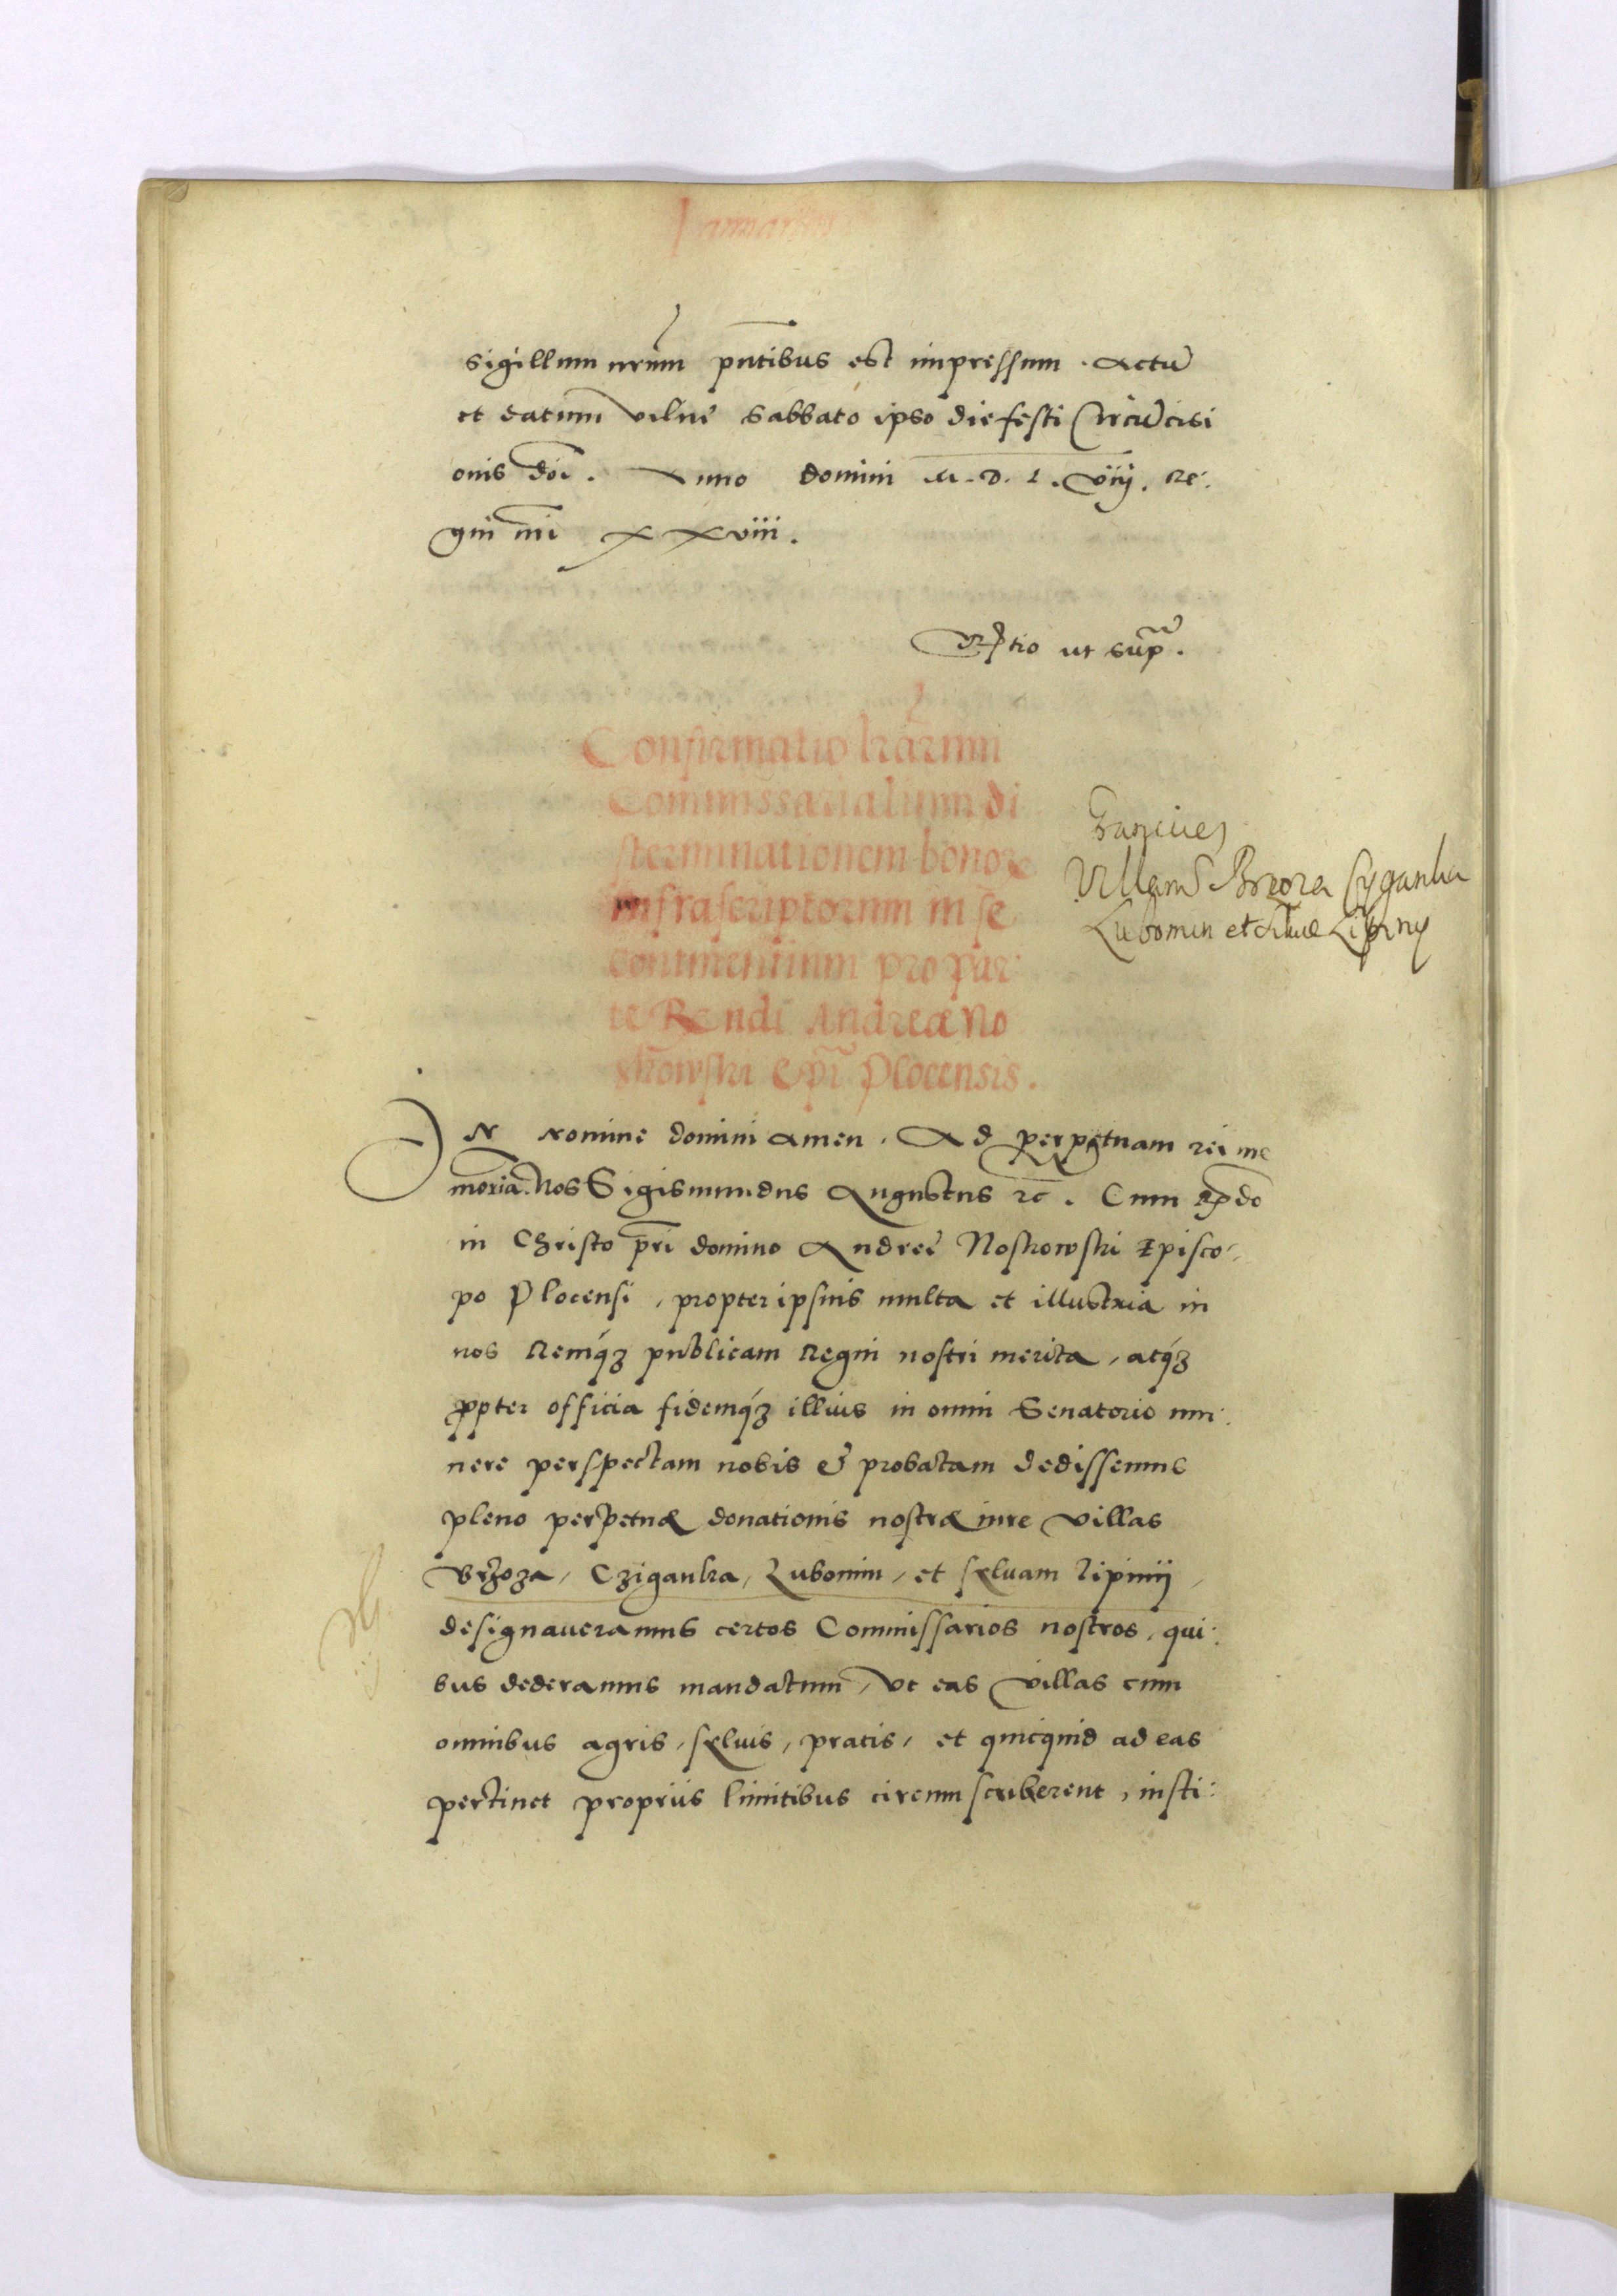 Januarius
sigillum nrūm pn̄tibus est impressum. Actū
et datum vilne Sabbato ipso die festi Circūcisi
onis doī. Anno domini M. D. L. viij. Re:
gni nri XXviii.
Rtio ut supˉ.
Confirmatio lrārum
Commissarialium di
sterminationem bonor
infrascriptorum in se
continentium pro par:
te Rendi Andreæ No
skowski Epī Plocensis.
Villam Brzoza Cyganka
Lubomin et siluæ Lipiny
IN Nomine domini Amen. Ad perpetuam rei me
moriā. Nos Sigismundus Augustus &c. Cum Rp̄do
in Christo prī domino Andreę Noskowski Episco:
po Plocensi, propter ipsius multa et illustria in
nos Remq́ʒ publicam Regni nostri merita, atq́ʒ
ꝓpter officia fidemq́ʒ illius in omni Senatorio mu:
nere perspectam nobis & probatam dedissemus
pleno perpetuæ donationis nostræ iure villas
Brzoza, Cziganka, Lubomin, et syluam Lipinij,
designaueramus certos Commissarios nostros, qui:
bus dederamus mandatum, vt eas villas cum
omnibus agris, syluis, pratis, et quicquid ad eas
pertinet proprijs limitibus circumscriberent, insti: